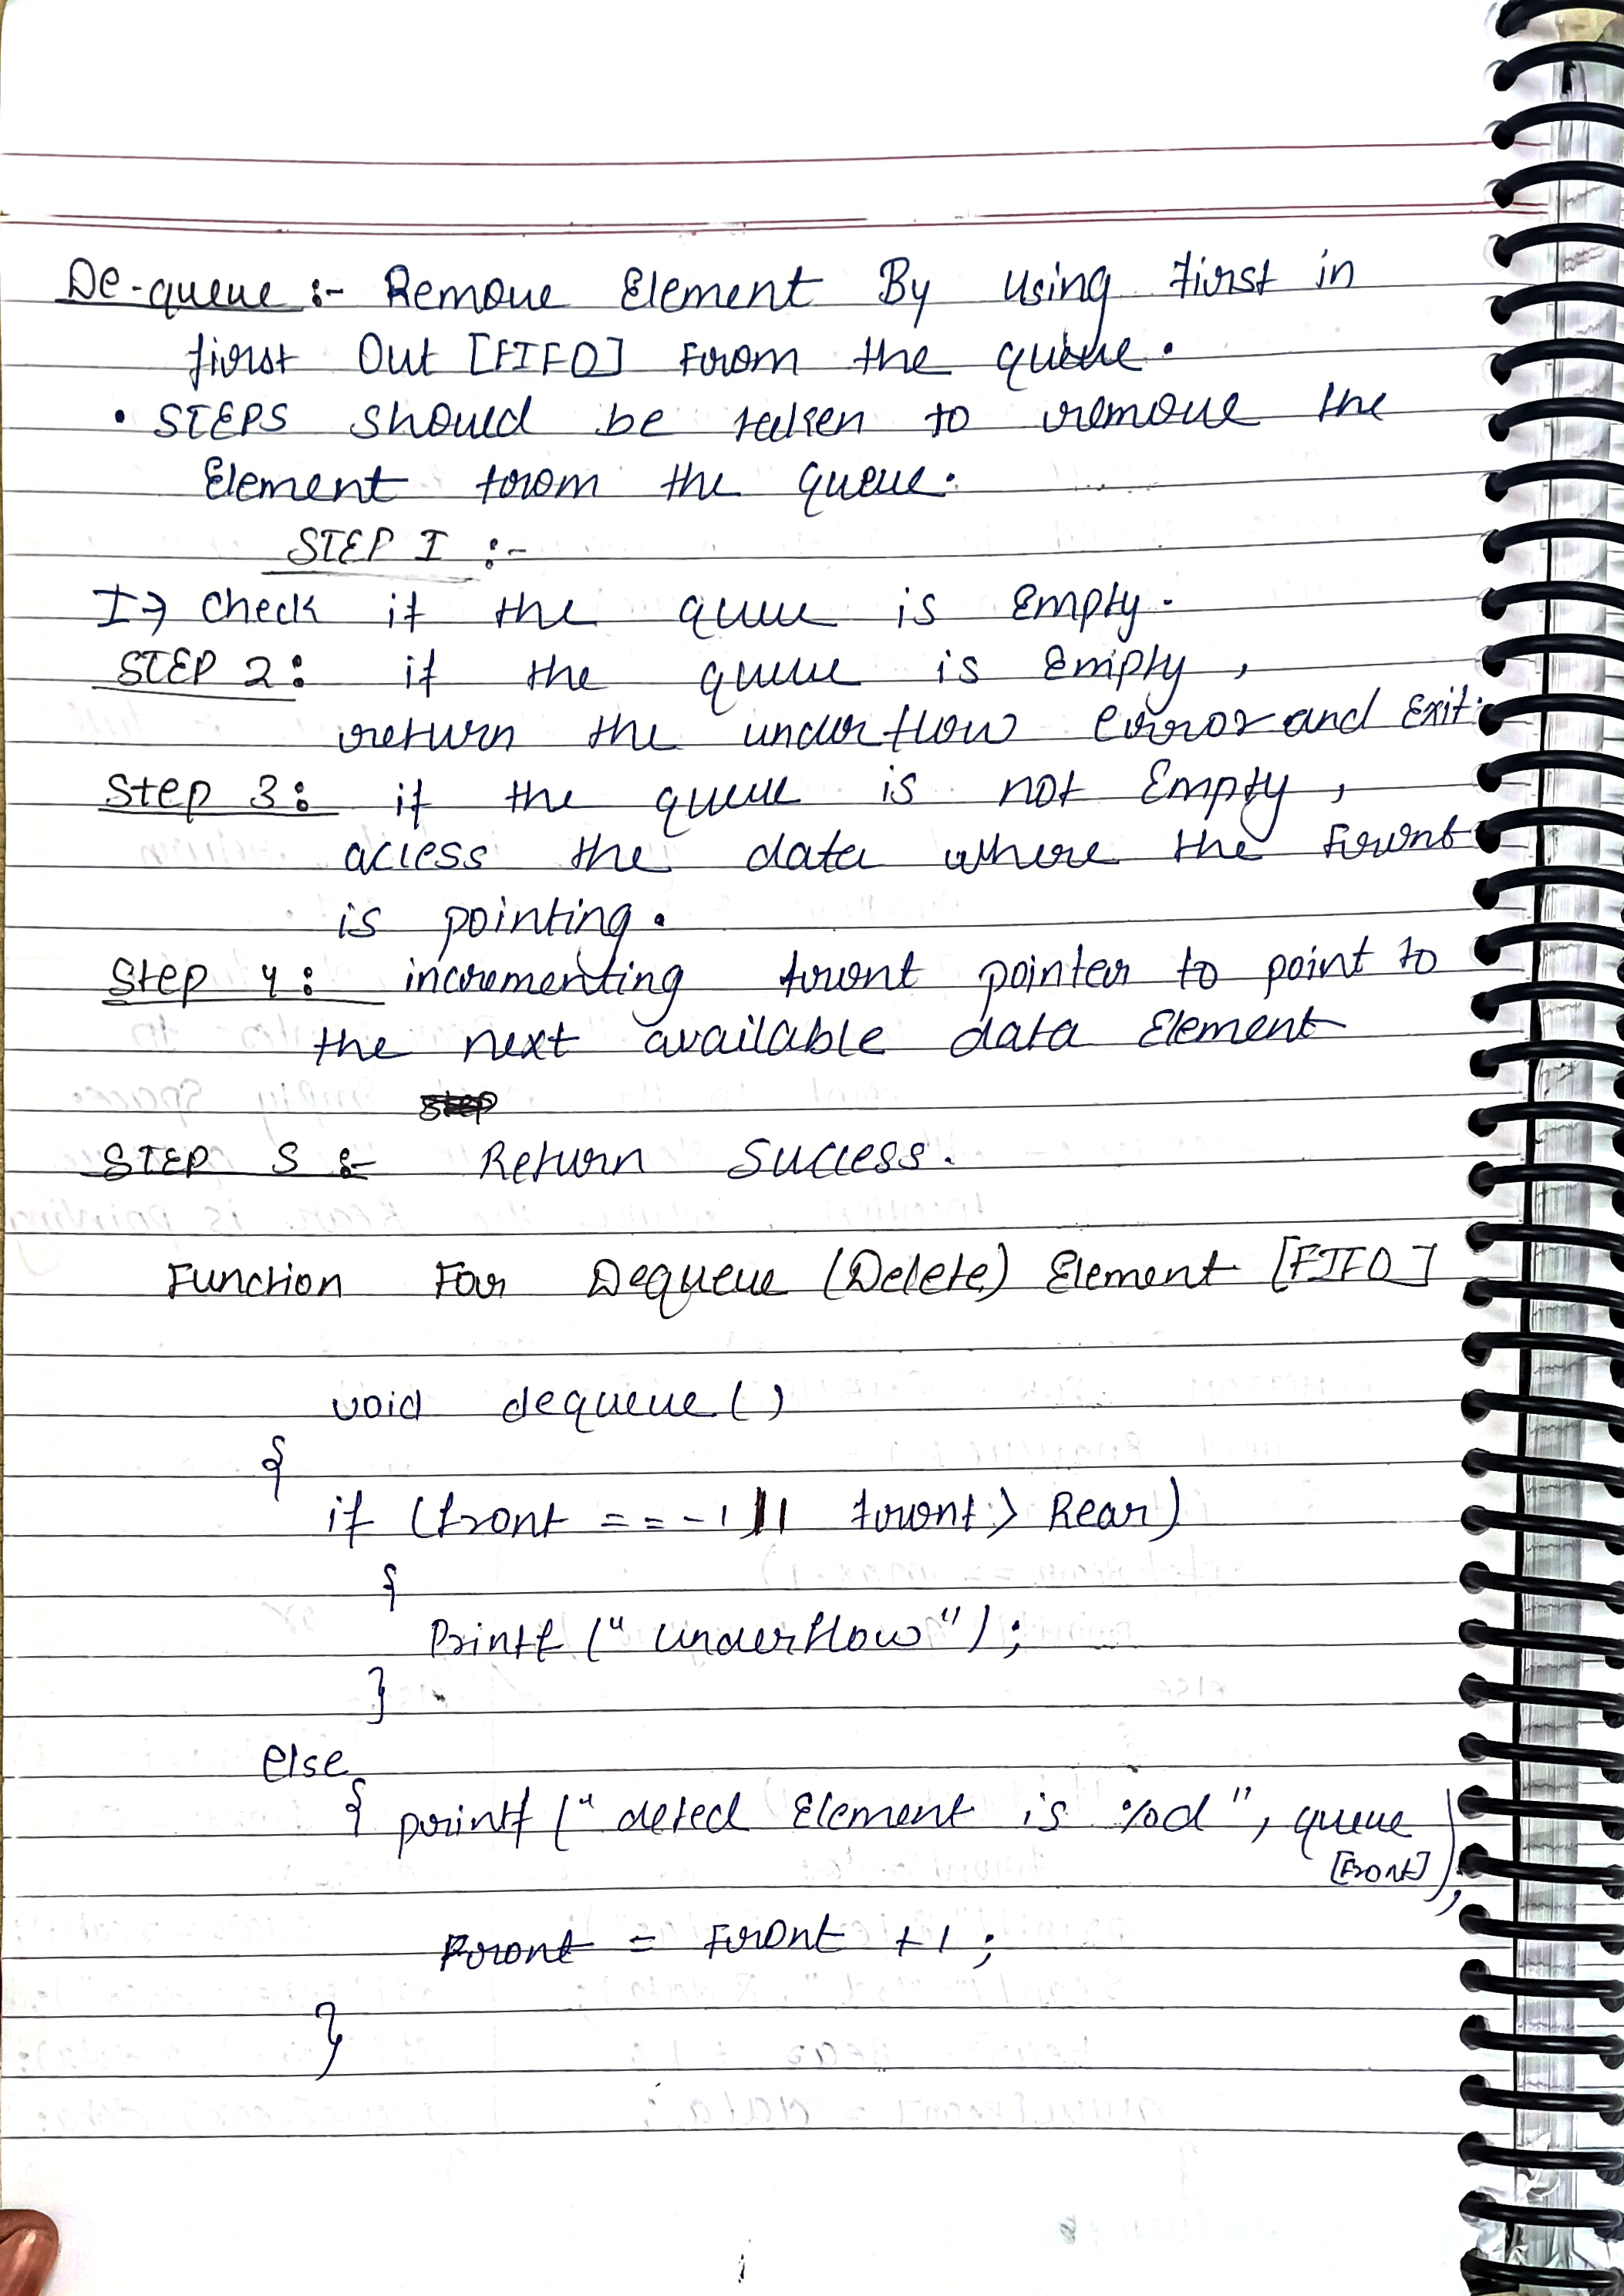 De-queue :- Remove Element By using first in
first Out [FIFO] From the queue.
• STEPS should be taken to remove the
Element from the queue.
STEP I :-
I→ Check if the queue is Empty.
STEP 2: if the queue is Empty,
return the underflow error and Exit.
Step 3: if the queue is not Empty,
access the data where the Front
is pointing.
Step 4: incrementing front pointer to point to
the next available data Element
Step
STEP 5 :- Return Success.
Function For Dequeue (Delete) Element [FIFO]
void dequeue()
{
if (front == -1 || front > Rear)
{
Printf (" underflow ");
}
else
{ printf (" deted Element is %d ", queue
[Front]);
Front = Front +1 ;
}